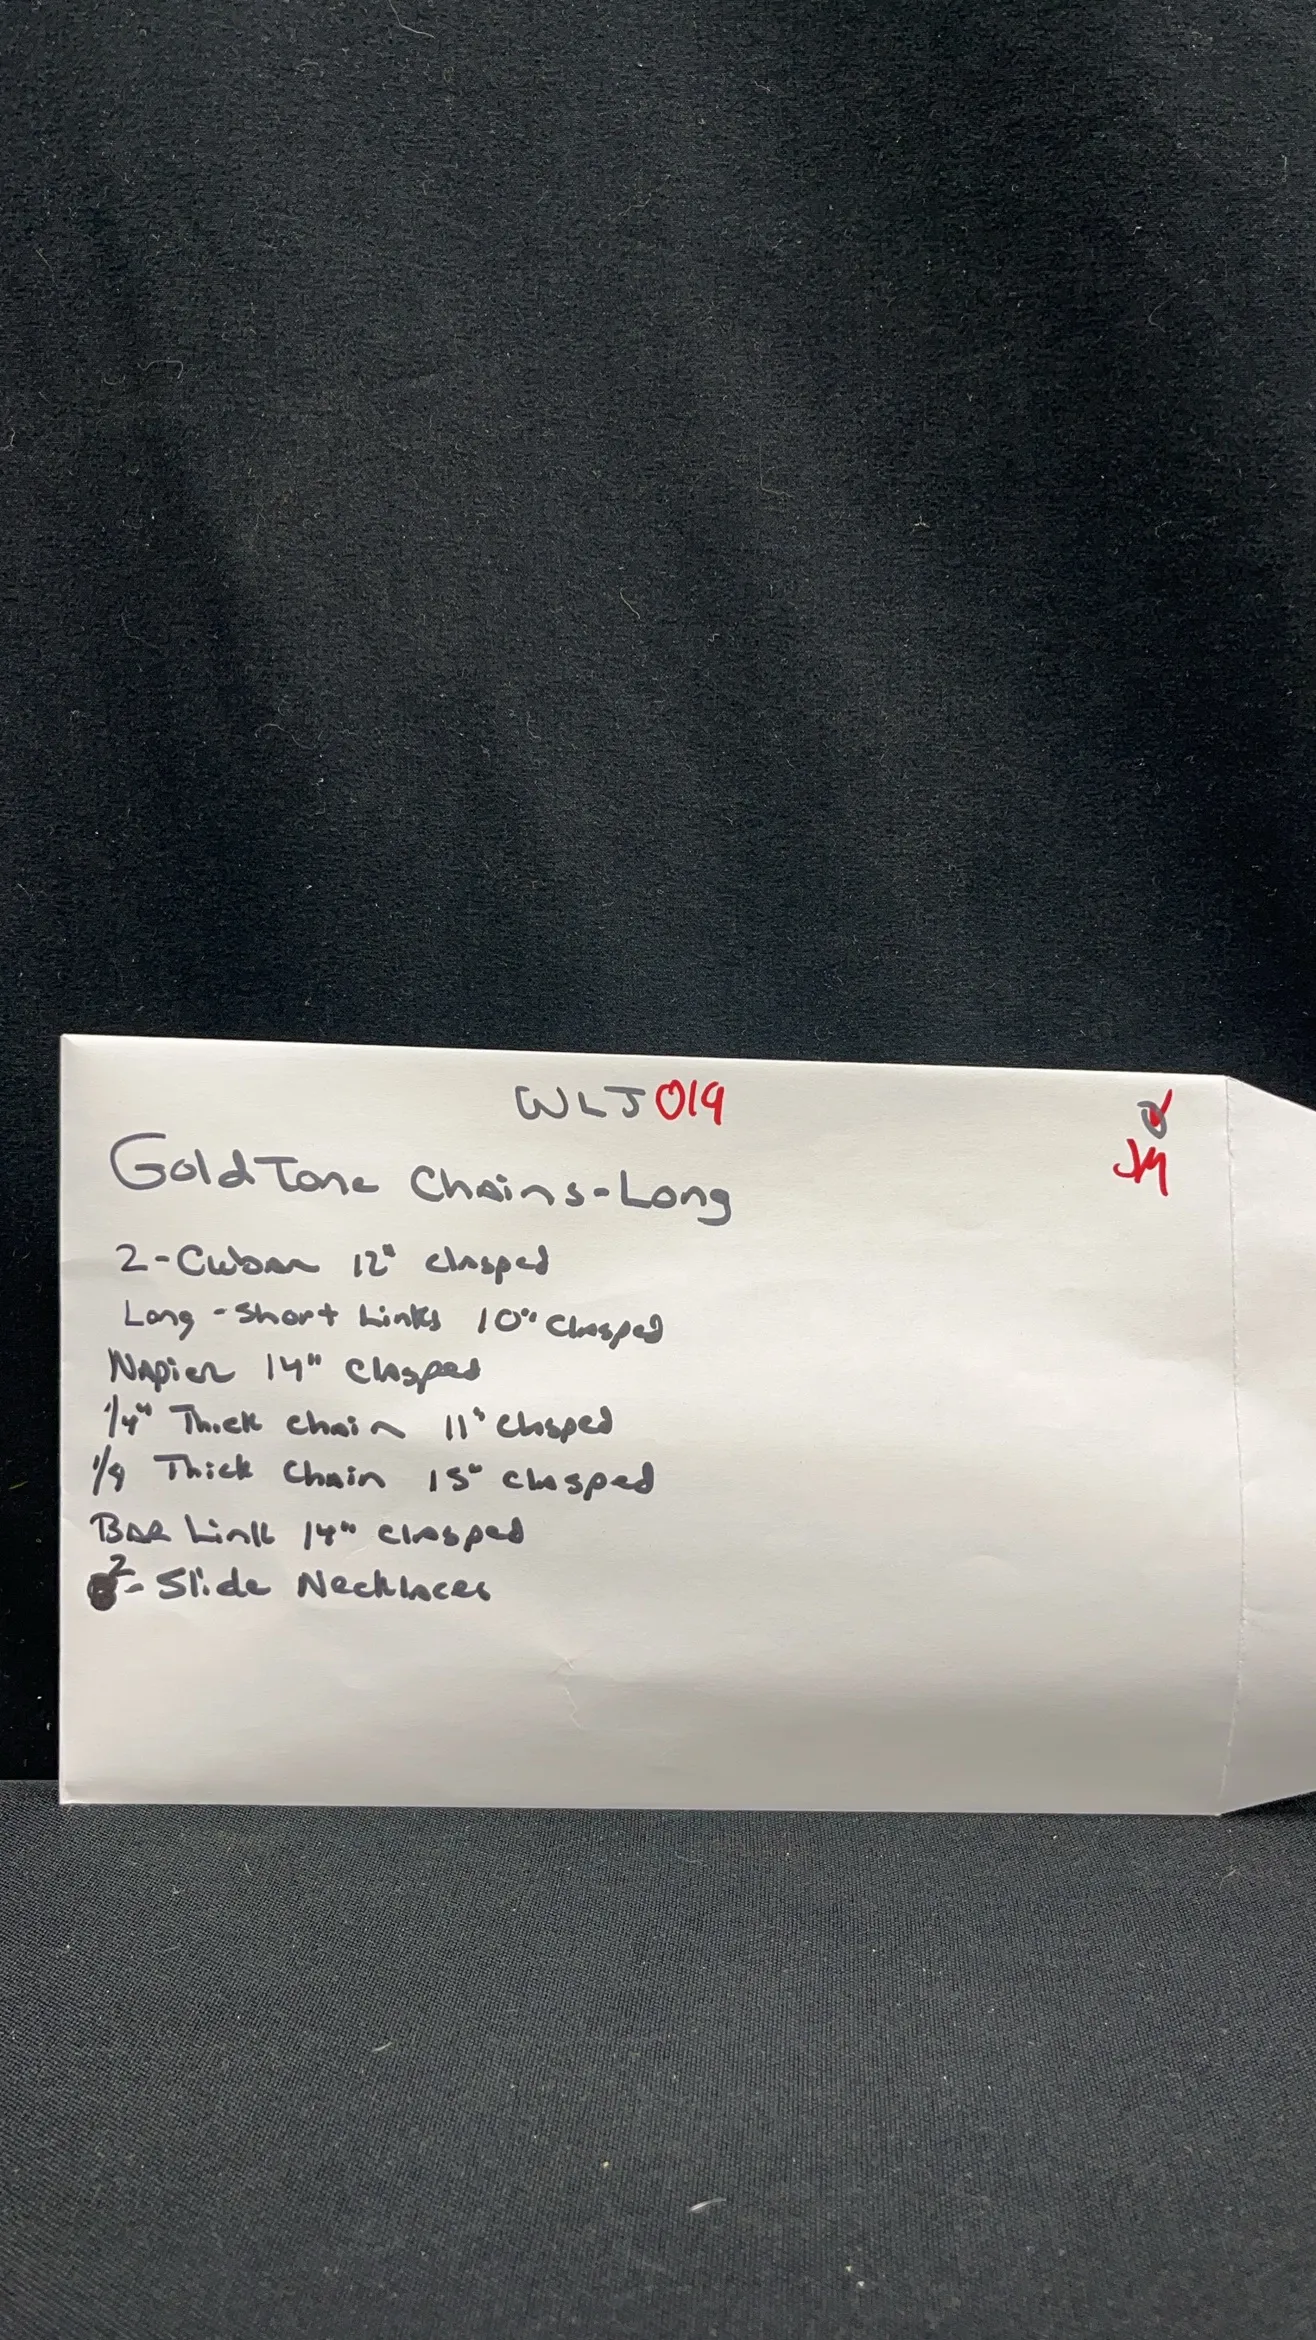 WLJ019
JM
Gold Tone Chains-Long
2-Cuban 12" clasped
Long-Short Links 10" Clasped
Napier 14" Clasped
1/4" Thick Chain 11" Clasped
Thick Chain 15" clasped
Bar Link 14" Clasped
2-Slide Necklaces